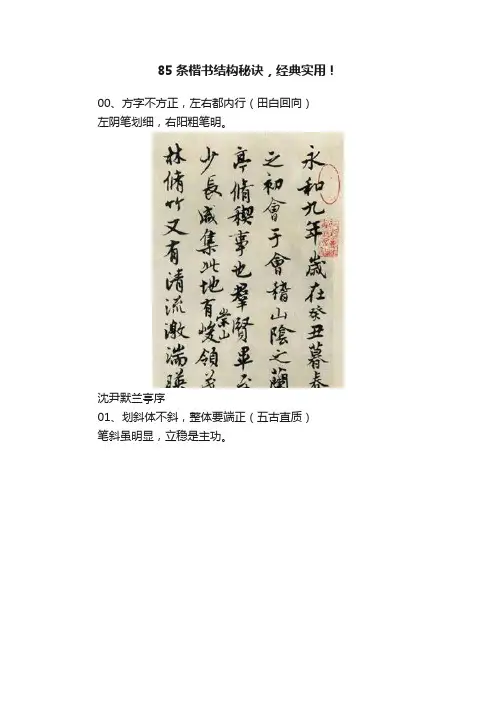 85条楷书结构秘诀，经典实用！
00、方字不方正，左右都内行（田白回向）
左阴笔划细，右阳粗笔明。
永和九年歲在癸丑暮春
之初會于會稽山陰之蘭
亭脩稧事也羣賢畢至
少長咸集此地有崇山峻領茂
林脩竹又有清流激湍暎
沈尹默兰亭序
01、划斜体不斜，整体要端正（五古直质）
笔斜虽明显，立稳是主功。